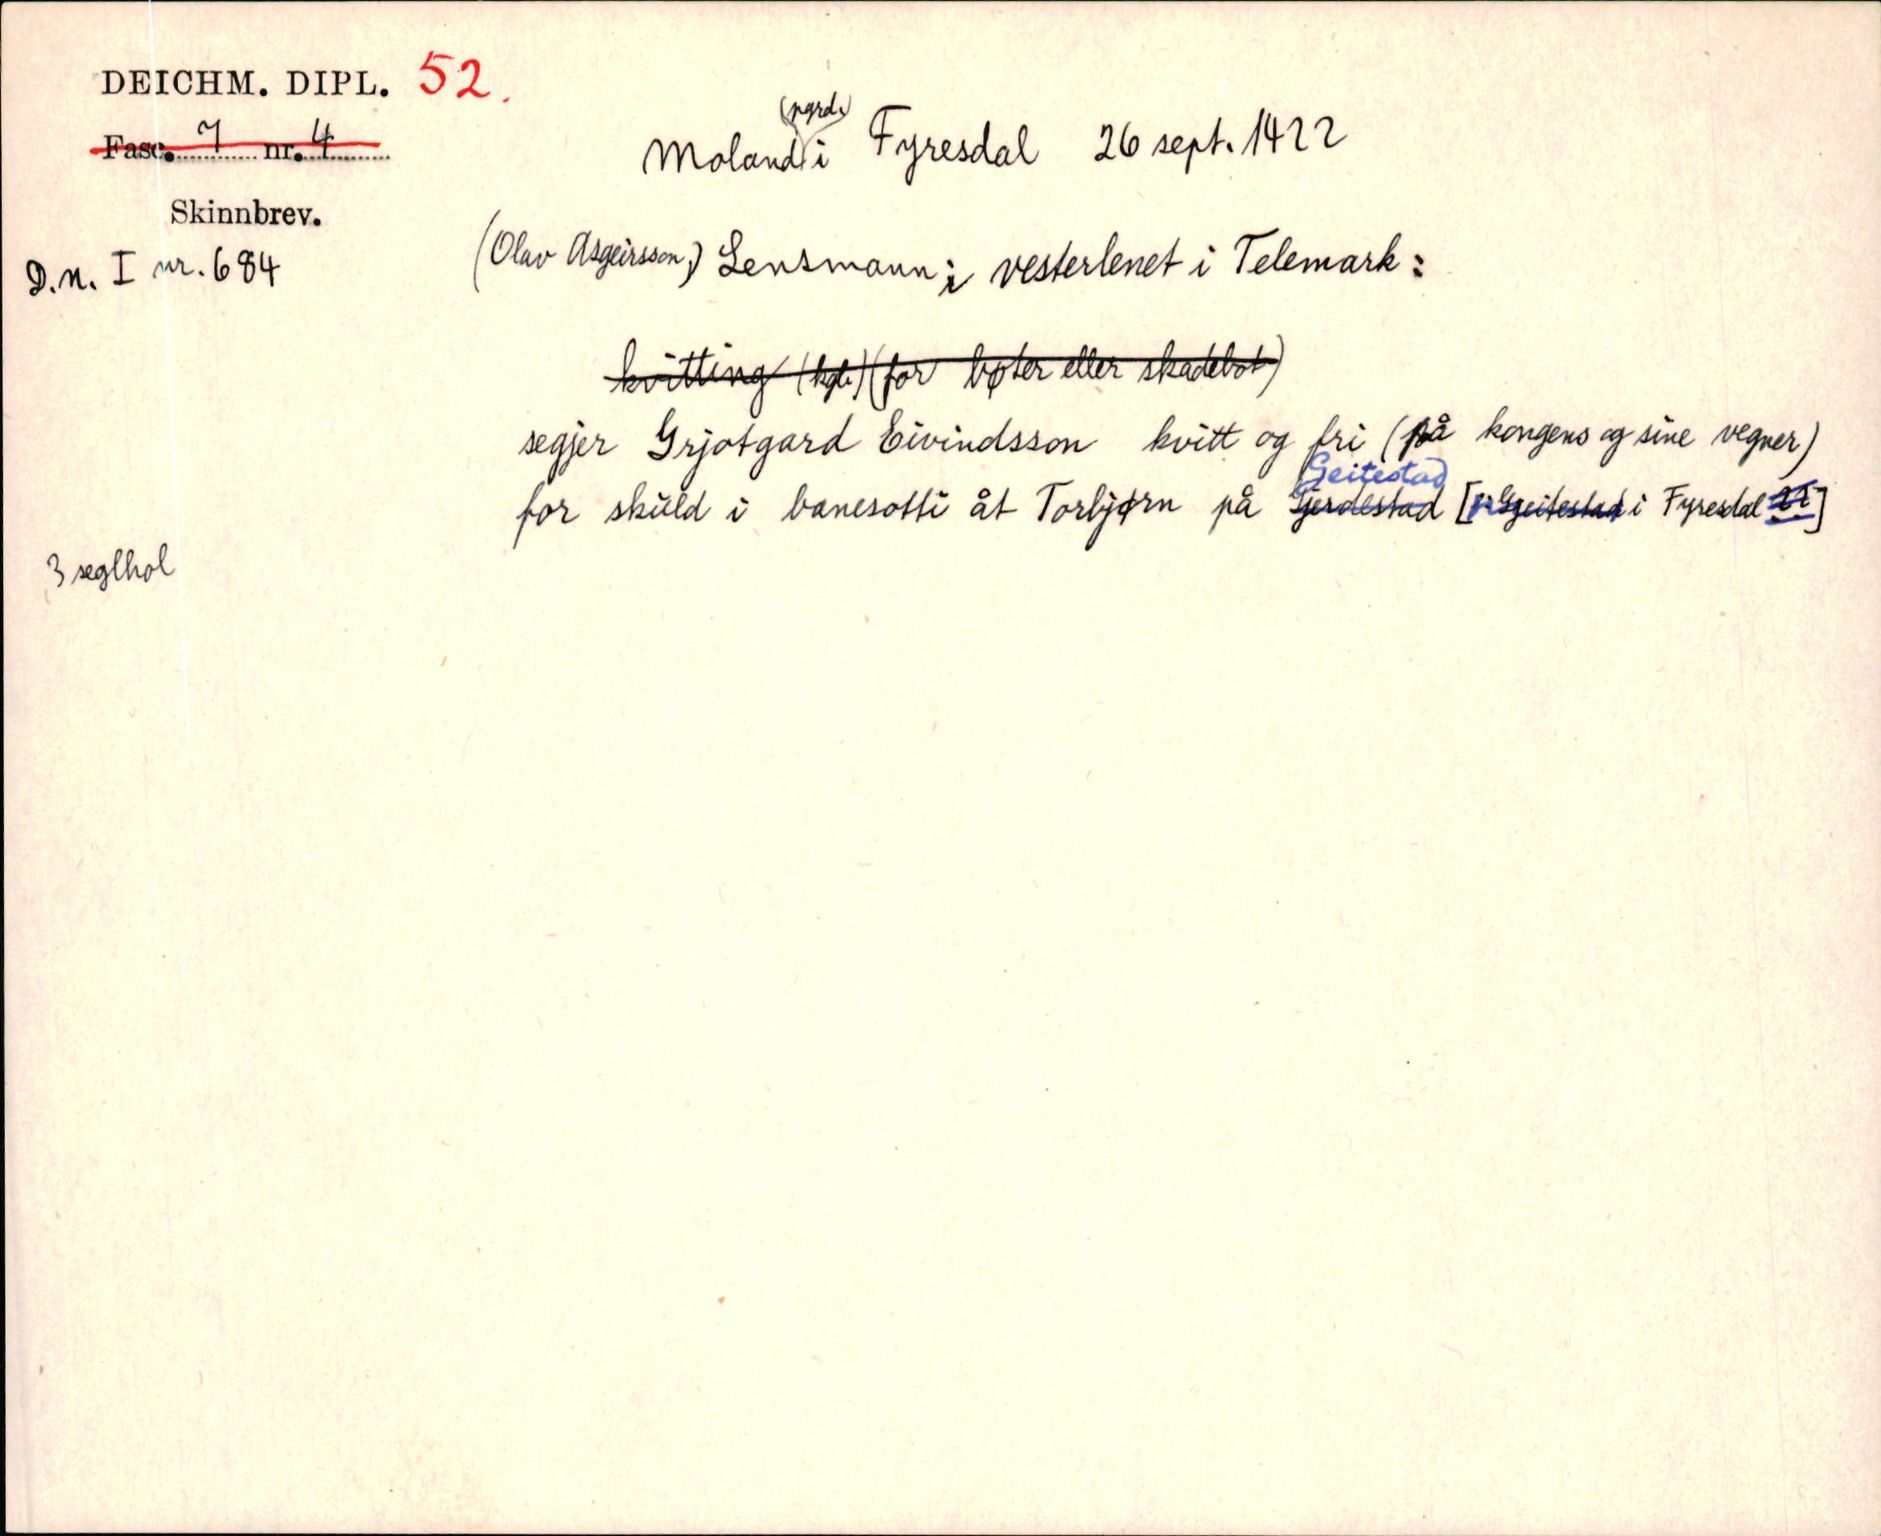 DEICHM. DIPL. 52.
Fasc. 7 nr. 4
Skinnbrev.
D.N. I nr. 684
(pgrd.)
Moland i Fyresdal 26 sept. 1422
(Olav Asgeirsson,) Lensmann i vesterlenet i Telemark:
kvitting (kgl.) (for bøter eller skadebot)
segjer Grjotgard Eivindsson kvitt og fri (på kongens og sine vegner)
Geitestad
for skuld i banesotti åt Torbjørn på Gjerdestad [Gjeitestad i Fyresdal]
3 seglhol